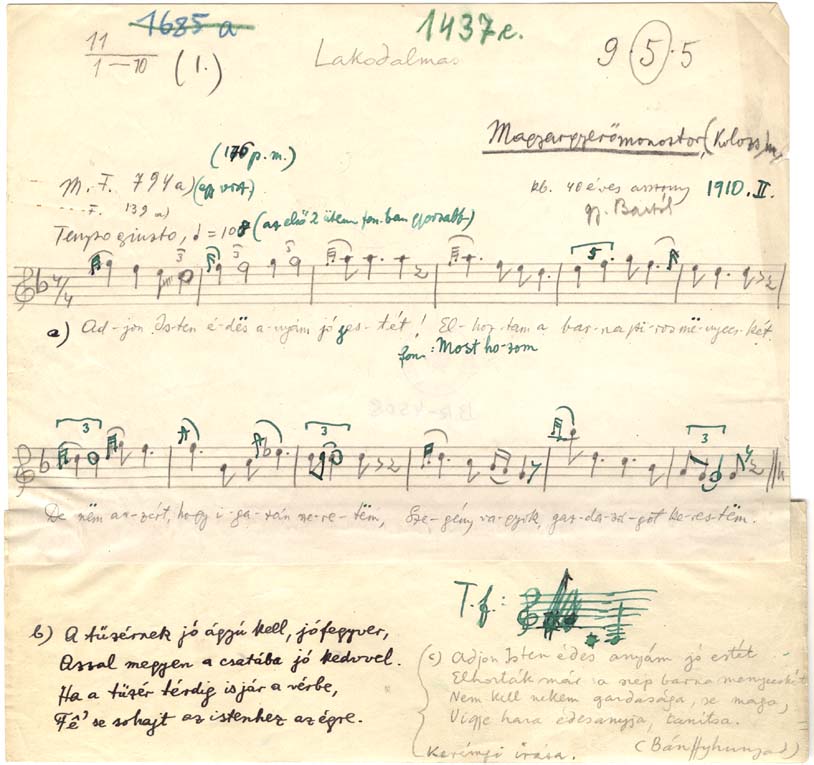 1685 a
1437 e.
11
1–10 (1.)
Lakodalmas
9.5.5
Magyargyerőmonostor, (Kolozs)m.
(176 p.m.)
M. F. 794a) (egy verst)
F. 139 a)
kb. 40 éves asszony 1910. II.
gy. Bartók
Tempo giusto, ♩ = 108 (az első 2 ütem fon.ban gyorsabb)
a) Ad-jon Is-ten é-dës a-nyám jó es-tét! El-hoz-tam a bar-na pi-ros më-nyecs-két
fon: Most ho-zom
BR-4508
De nëm az-zért, hogy i-ga-zán sze-re-tëm, Sze-gény va-gyok, gaz-da-sá-got ke-res-tëm.
T. f.:
b) A tüzérnek jó ágyú kell, jó fegyver,
Azzal megyen a csatába jó kedvvel.
Ha a tüzér térdig is jár a vérbe,
Fê' se sohajt az istenhez az égre.
c) Adjon Isten édes anyám jó estét
Elhozták már a szép barna menyecskét
Nem kell nekem gazdasága, se maga,
Vigye haza édesanyja, tanítsa.
(Bánffyhunyad)
Kerényi írása.